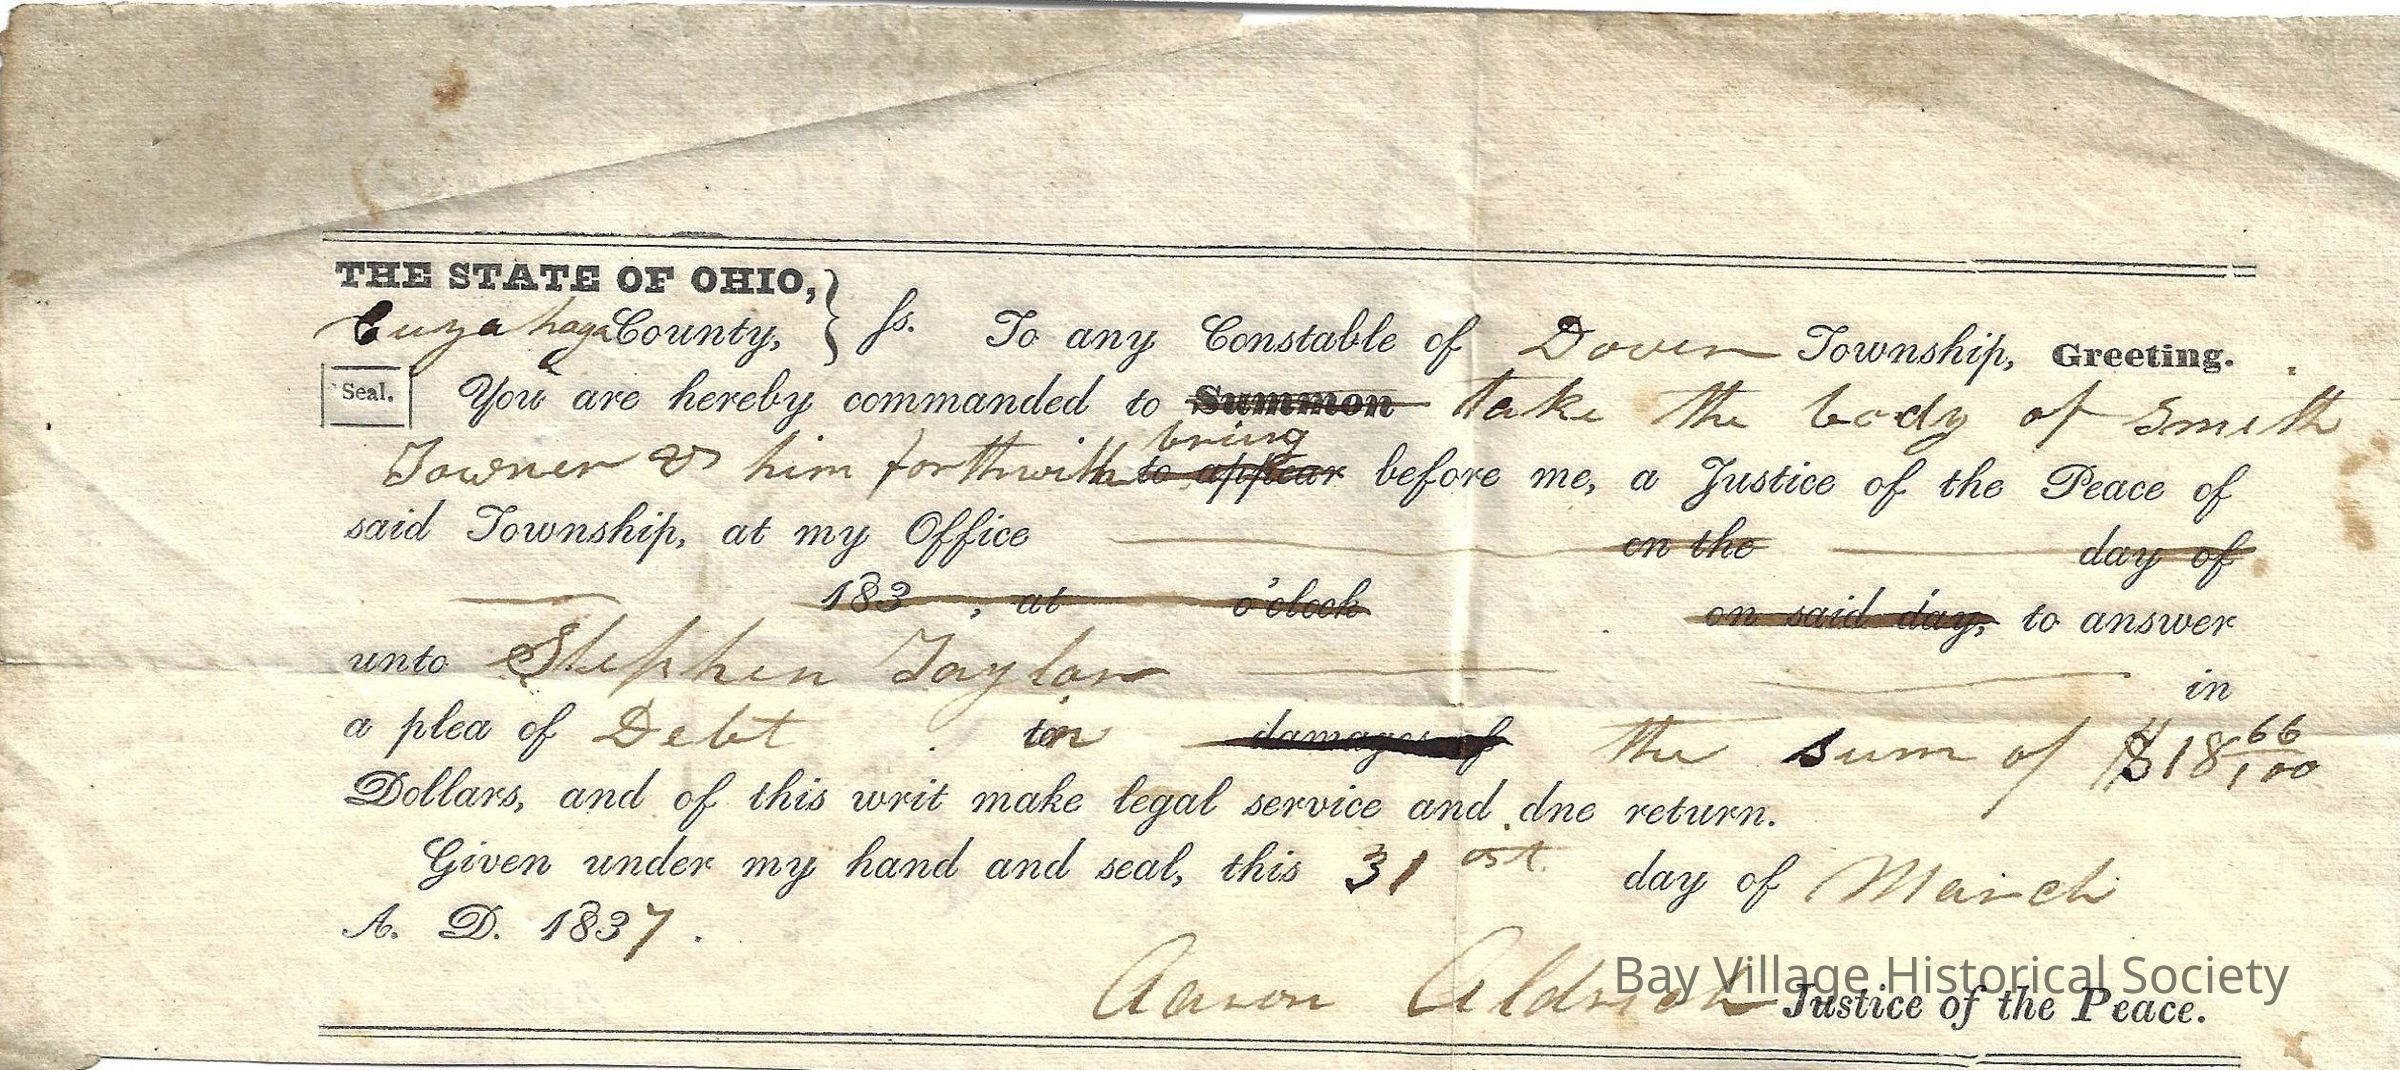 THE STATE OF OHIO,
Cuyahoga County, } ss. To any Constable of Dover Township, Greeting.
Seal. You are hereby commanded to Summon take the body of Smith
bring
Towner & him forthwith to appear before me, a Justice of the Peace of
said Township, at my Office on the day of
183 , at o'clock on said day, to answer
unto Stephen Taylor in
a plea of Debt in damages of the sum of $18 66/100
Dollars, and of this writ make legal service and dne return.
Given under my hand and seal, this 31 st day of March
A. D. 1837.
Aaron Aldrich Justice of the Peace.
Bay Village Historical Society